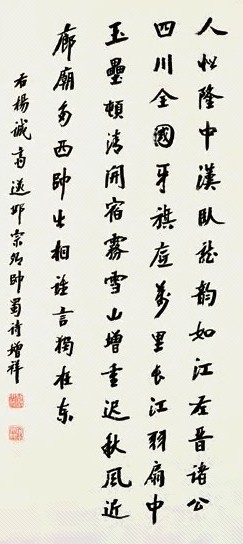 人似隆中漢臥龍韵如江左晉諸公
四川全國牙旗底萬里長江羽扇中
玉壘頓清開宿霧雪山增重起秋風近
廊廟多西帥出相誰言獨在東
右楊誠齋送邱宗卿帥蜀詩增祥